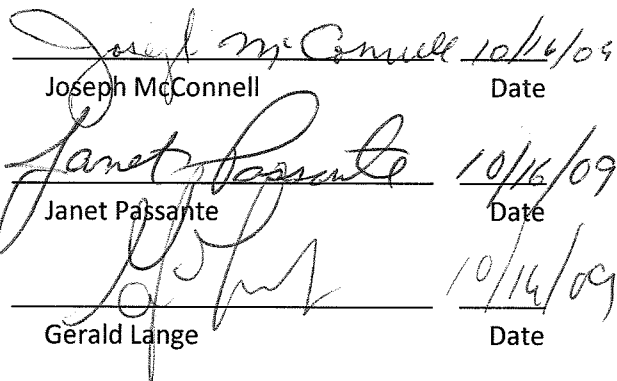 Joseph McConnell 10/16/09
Joseph McConnell Date
Janet Passante 10/16/09
Janet Passante Date
10/16/09
Gerald Lange Date